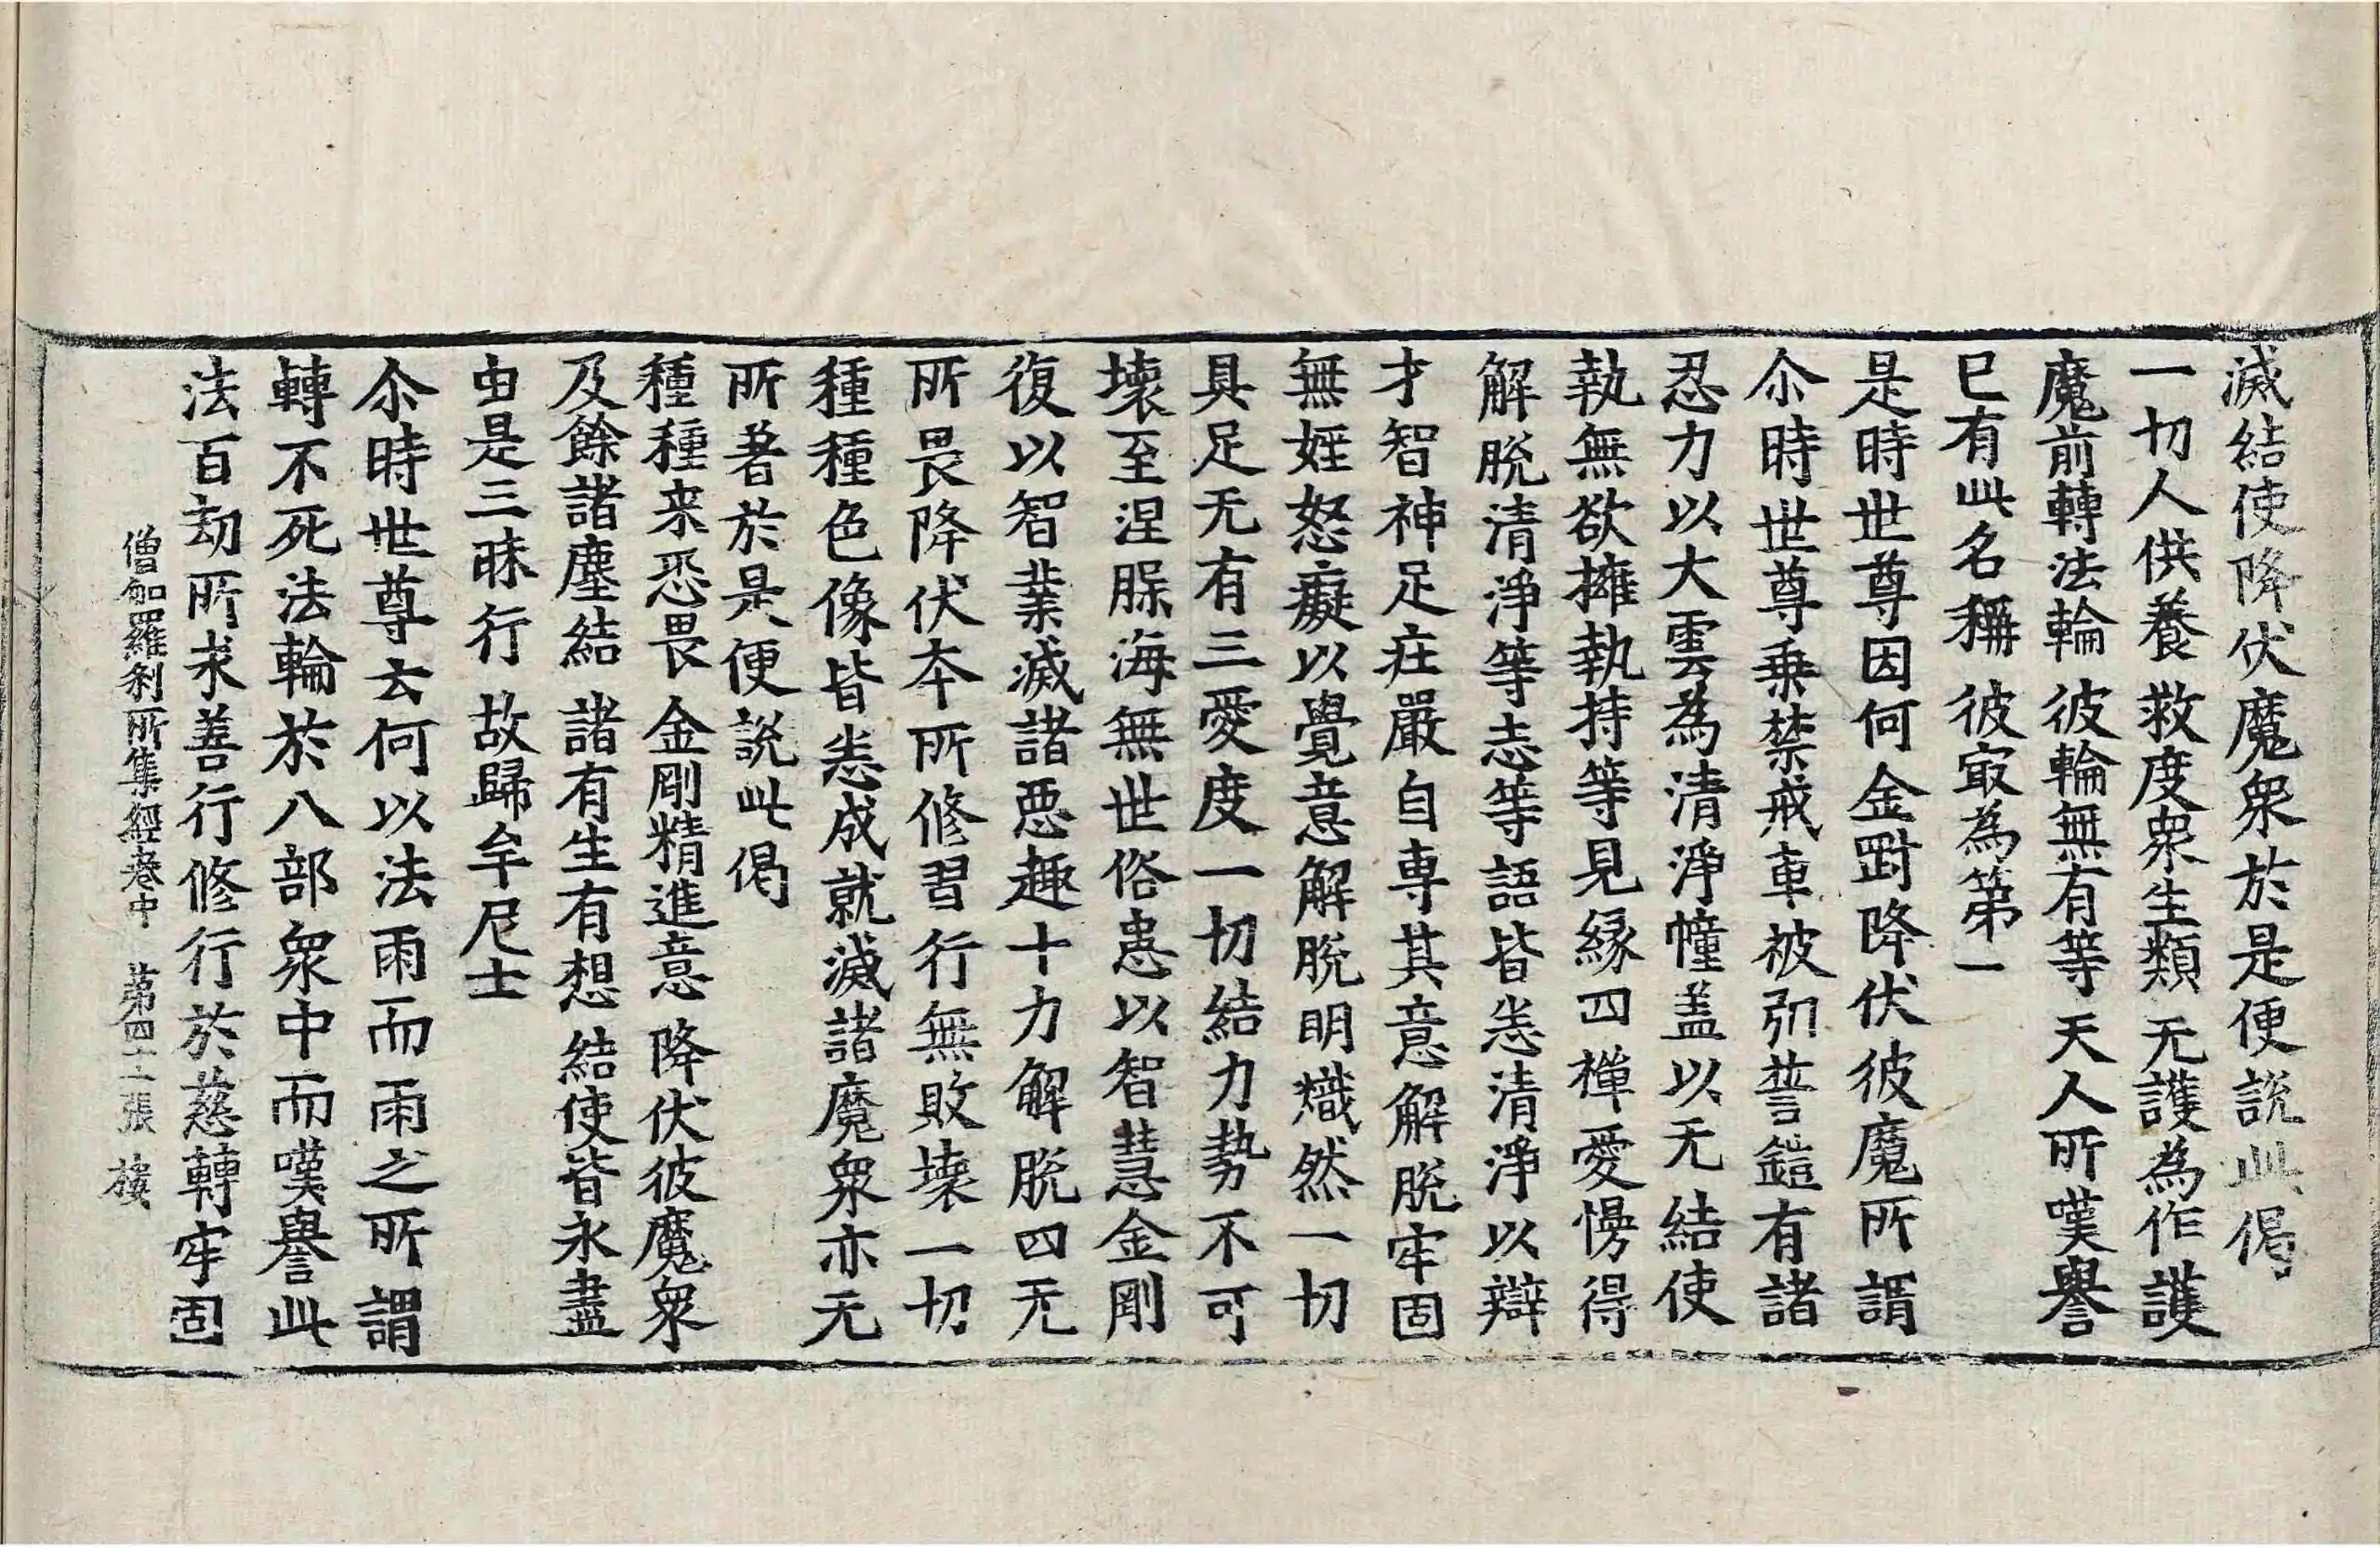 滅結使降伏魔衆於是便說此偈
一切人供養 救度衆生類 无護為作護
魔前轉法輪 彼輪無有等 天人所嘆譽
已有此名稱 彼㝡為第一
是時世尊因何金剛降伏彼魔所謂
尒時世尊乗禁戒車被弘誓鎧有諸
忍力以大雲為清淨幢盖以无結使
執無欲擁執持等見縁四禪愛慢得
解脫清淨等志等語皆悉清淨以辯
才智神足莊嚴自専其意解脫牢固
無婬怒癡以覺意解脫明熾然一切
具足无有三愛度一切結力勢不可
壞至涅膝海無世俗患以智慧金剛
復以智業滅諸惡趣十力解脫四无
所畏降伏本所修習行無敗壊一切
種種色像皆悉成就滅諸魔衆亦无
所著於是便說此偈
種種来恐畏 金剛精進意 降伏彼魔衆
及餘諸塵結 諸有生有想 結使皆永盡
由是三昧行 故歸牟尼士
尒時世尊云何以法雨而雨之所謂
轉不死法輪於八部衆中而嘆譽此
法百劫所求善行修行於慈轉牢固
僧伽羅刹所集經卷中 第四十張 樓